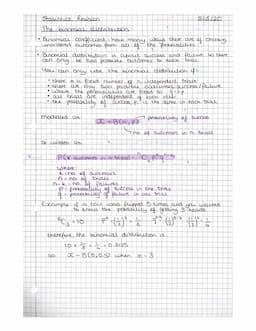 Statistics Revision
The binomial distribution
• Binomial coefficient: how many ways there are of choosing
unordered outcomes from all of the
• Binomial distribution is about success and failure so there
can only be two possible outcomes to each trial.
You can only use the binomial distribution if:
• there is a fixed number of n independent trials
• there are only two possible outcomes success/failure
• where the probabilities are fixed to q + p
• all trials are independent of each other
• the probability of success, p, is the same in each trial
Modelled as
x ~ B(n,p)
probability of success
no. of success in n trials
Or written as
Where:
k = no. of successes
n = no. of trials
n-k = no. of failures
p = probability of success in one trial
q = probability of failure in one trial
Example if a coin was flipped 5 times and you wanted
to know the probability of getting 3 heads
therefore, the binomial distribution is
10 × 1/8 × 1/4 = 0.3125
so x ~ B(5,0.5) when x = 3